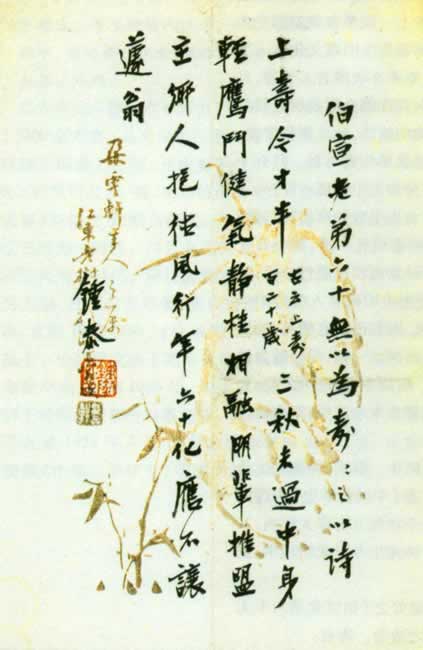 伯宣老弟六十無以為壽以詩
上壽今才半
古上壽
百二十歲
三秋未過中身
輕鷹鬥健氣靜桂相融朋輩推盟
主鄉人挹德風行年六十化應不讓
蘧翁
江東
鍾泰